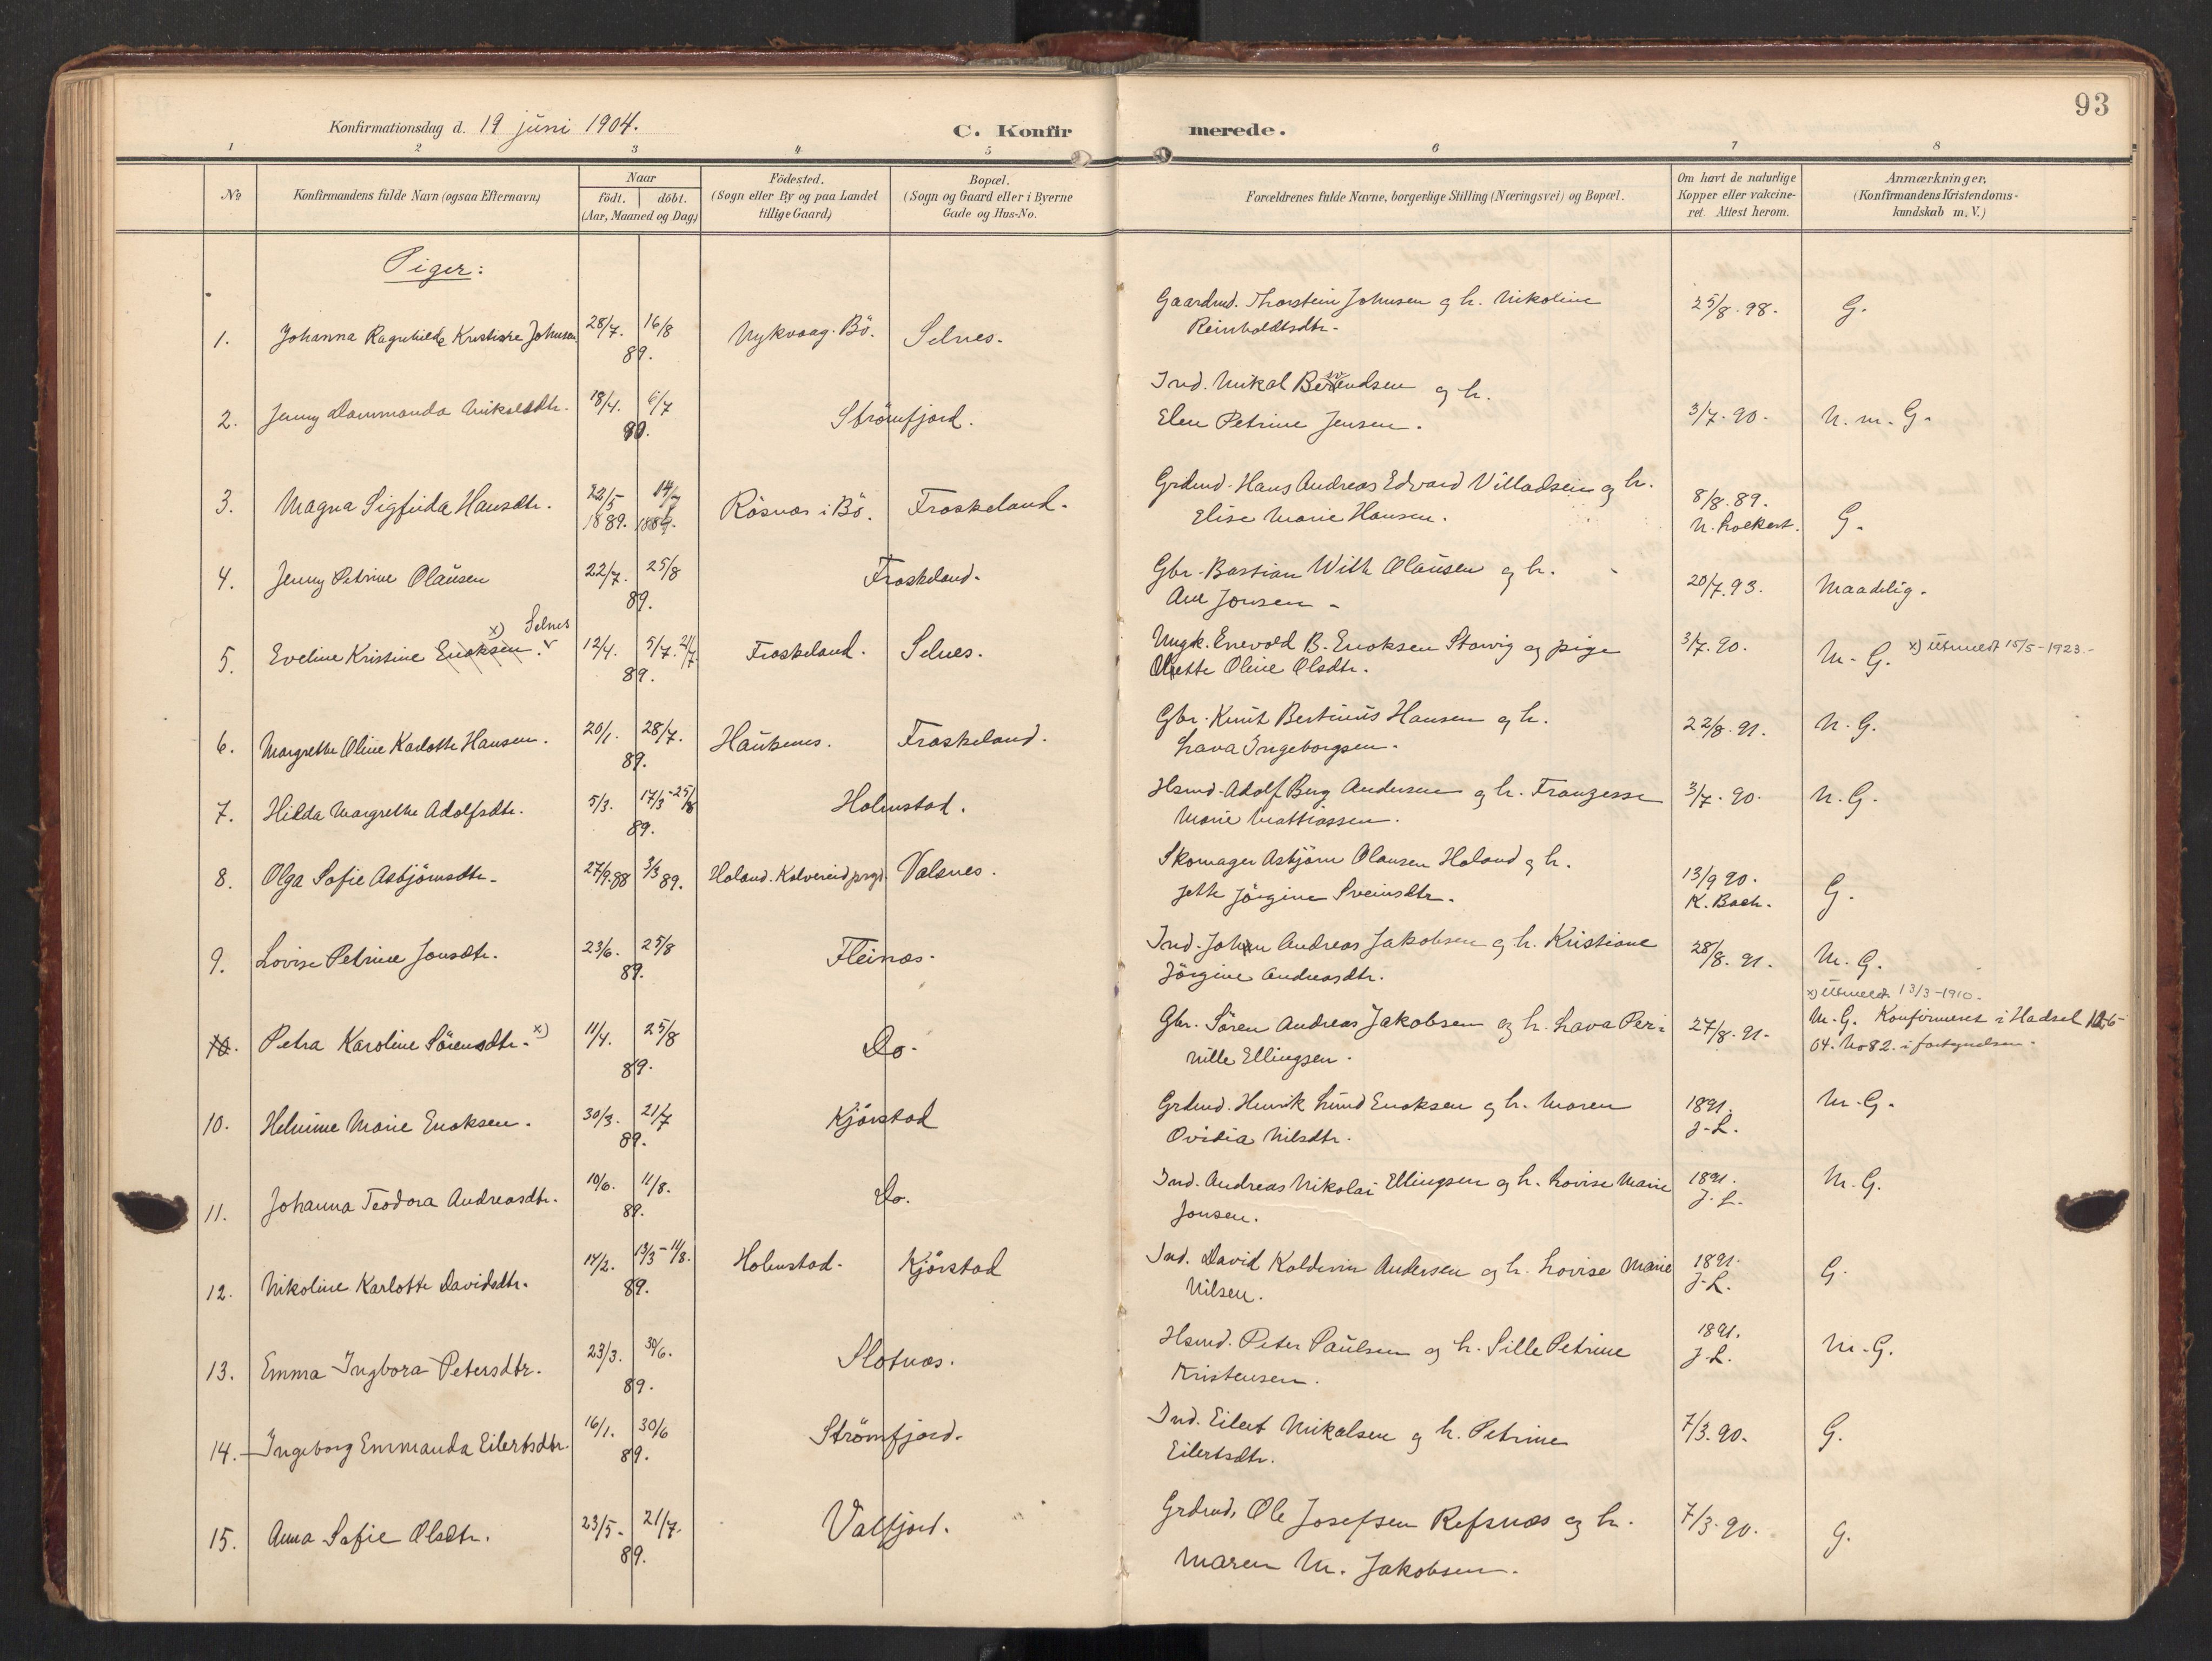 93
Konfirmationsdag d. 19 juni 1904. C. Konfirmerede.
1 2 3 4 5 6 7 8
No Konfirmandens fulde Navn (ogsaa Efternavn) Naar födt. döbt. (Aar, Maaned og Dag) Födested. (Sogn eller By og paa Landet tillige Gaard) Bopæl. (Sogn og Gaard eller i Byerne Gade og Hus-No. Forældrenes fulde Navne, borgerlige Stilling (Næringsvei) og Bopæl. Om havt de naturlige Kopper eller vakcineret. Attest herom. Anmærkninger, (Konfirmandens Kristendomskundskab m. V.)
Piger:
1. Johanna Ragnhilde Kristine Johnsen 28/7. 16/8 89. Nykvaag. Bö. Selnes. Gaardmd. Thorstein Johnsen og h. Nikoline
Reinholdtsdtr. 25/8. 98. G.
2. Jenny Dammanda Mikalsdtr. 18/4. 6/7 90. Strömfjord. Ind. Mikal Berendsen og h.
Elen Petrine Jensen. 3/7. 90. N. m. G.
3. Magna Sigfrida Hansdtr. 22/5 1889. 14/7 1889. Rösnæs i Bö. Froskeland. Grdmd. Hans Andreas Edvard Villadsen og h.
Elise Marie Hansen. 8/8. 89. G.
4. Jenny Petrine Olausen 22/7. 25/8 89. Froskeland. Gbr. Bastian Wilh Olausen og h.
Ane Jonsen 20/7. 93. Maadelig.
5. Eveline Kristine Enoksen. x) Selnes 12/4. 5/7. 21/7. 89. Froskeland. Selnes. Ungk. Enevold B. Enoksen Stavig og pige
Oline Olsdtr. 3/7. 90. M. G. x) Utmeldt 15/5-1923.
6. Margrethe Oline Karlotte Hansen. 20/1. 28/7. 89. Haukenes. Froskeland. Gbr. Knut Bertinus Hansen og h.
Lava Ingeborgsen. 22/8. 91. M. G.
7. Hilda Margrethe Adolfsdtr. 5/3. 17/3-25/8 89. Holmstad. Hsmd. Adolf Berg Andersen og h. Franzesse
Marie Mattiassen. 3/7. 90. M. G.
8. Olga Sofie Asbjörnsdtr. 27/9. 88 3/3 89. Holand. Kolvereid prgj. Valsnes. Skomager Asbjörn Olausen Holand og h.
Jette Jörgine Sveinsdtr. 13/9 90. K. Bach. G.
9. Lovise Petrine Jonsdtr. 23/6. 25/8 89. Fleinæs. Ind. Johan Andreas Jakobsen og h. Kristiane
Jörgine Andreasdtr. 28/8. 91. M. G.
10. Petra Karoline Sörensdtr. x) 11/4. 25/8 89. Do. Gbr. Sören Andreas Jakobsen og h. Lava Per-
nille Ellingsen. 27/8. 91. x) Utmeldt 13/3-1910.
M. G. Konfirmeret i Hadsel 12/6
04. No 82. i fortegnelsen.
10. Helmine Marie Enoksen. 30/3. 21/7 89. Kjörstad Grdmd. Henrik Lund Enoksen og h. Maren
Ovidia Nilsdtr. 1891. J. L. M. G.
11. Johanna Teodora Andreasdtr. 10/6. 11/8. 89. Do. Ind. Andreas Nikolai Ellingsen og h. Lovise Marie
Jonsen. 1891. J. L. M. G.
12. Nikoline Karlotte Davidsdtr. 14/2. 13/3-11/8. 89. Holmstad. Kjörstad Ind. David Koldevin Andersen og h. Lovise Marie
Nilsen. 1891. J. L. G.
13. Emma Ingbora Petersdtr. 23/3. 30/6. 89. Slotnæs. Hsmd. Peter Paulsen og h. Sille Petrine
Kristensen. 1891. J. L. M. G.
14. Ingeborg Emmanda Eilertsdtr. 16/1. 30/6 89. Strömfjord. Ind. Eilert Mikalsen og h. Petrine
Eilertsdtr. 7/3. 90. G.
15. Anna Sofie Olsdtr. 23/5. 21/7. 89. Valfjord. Grdmd. Ole Josefsen Refsnæs og h.
Maren M. Jakobsen. 7/3. 90. G.